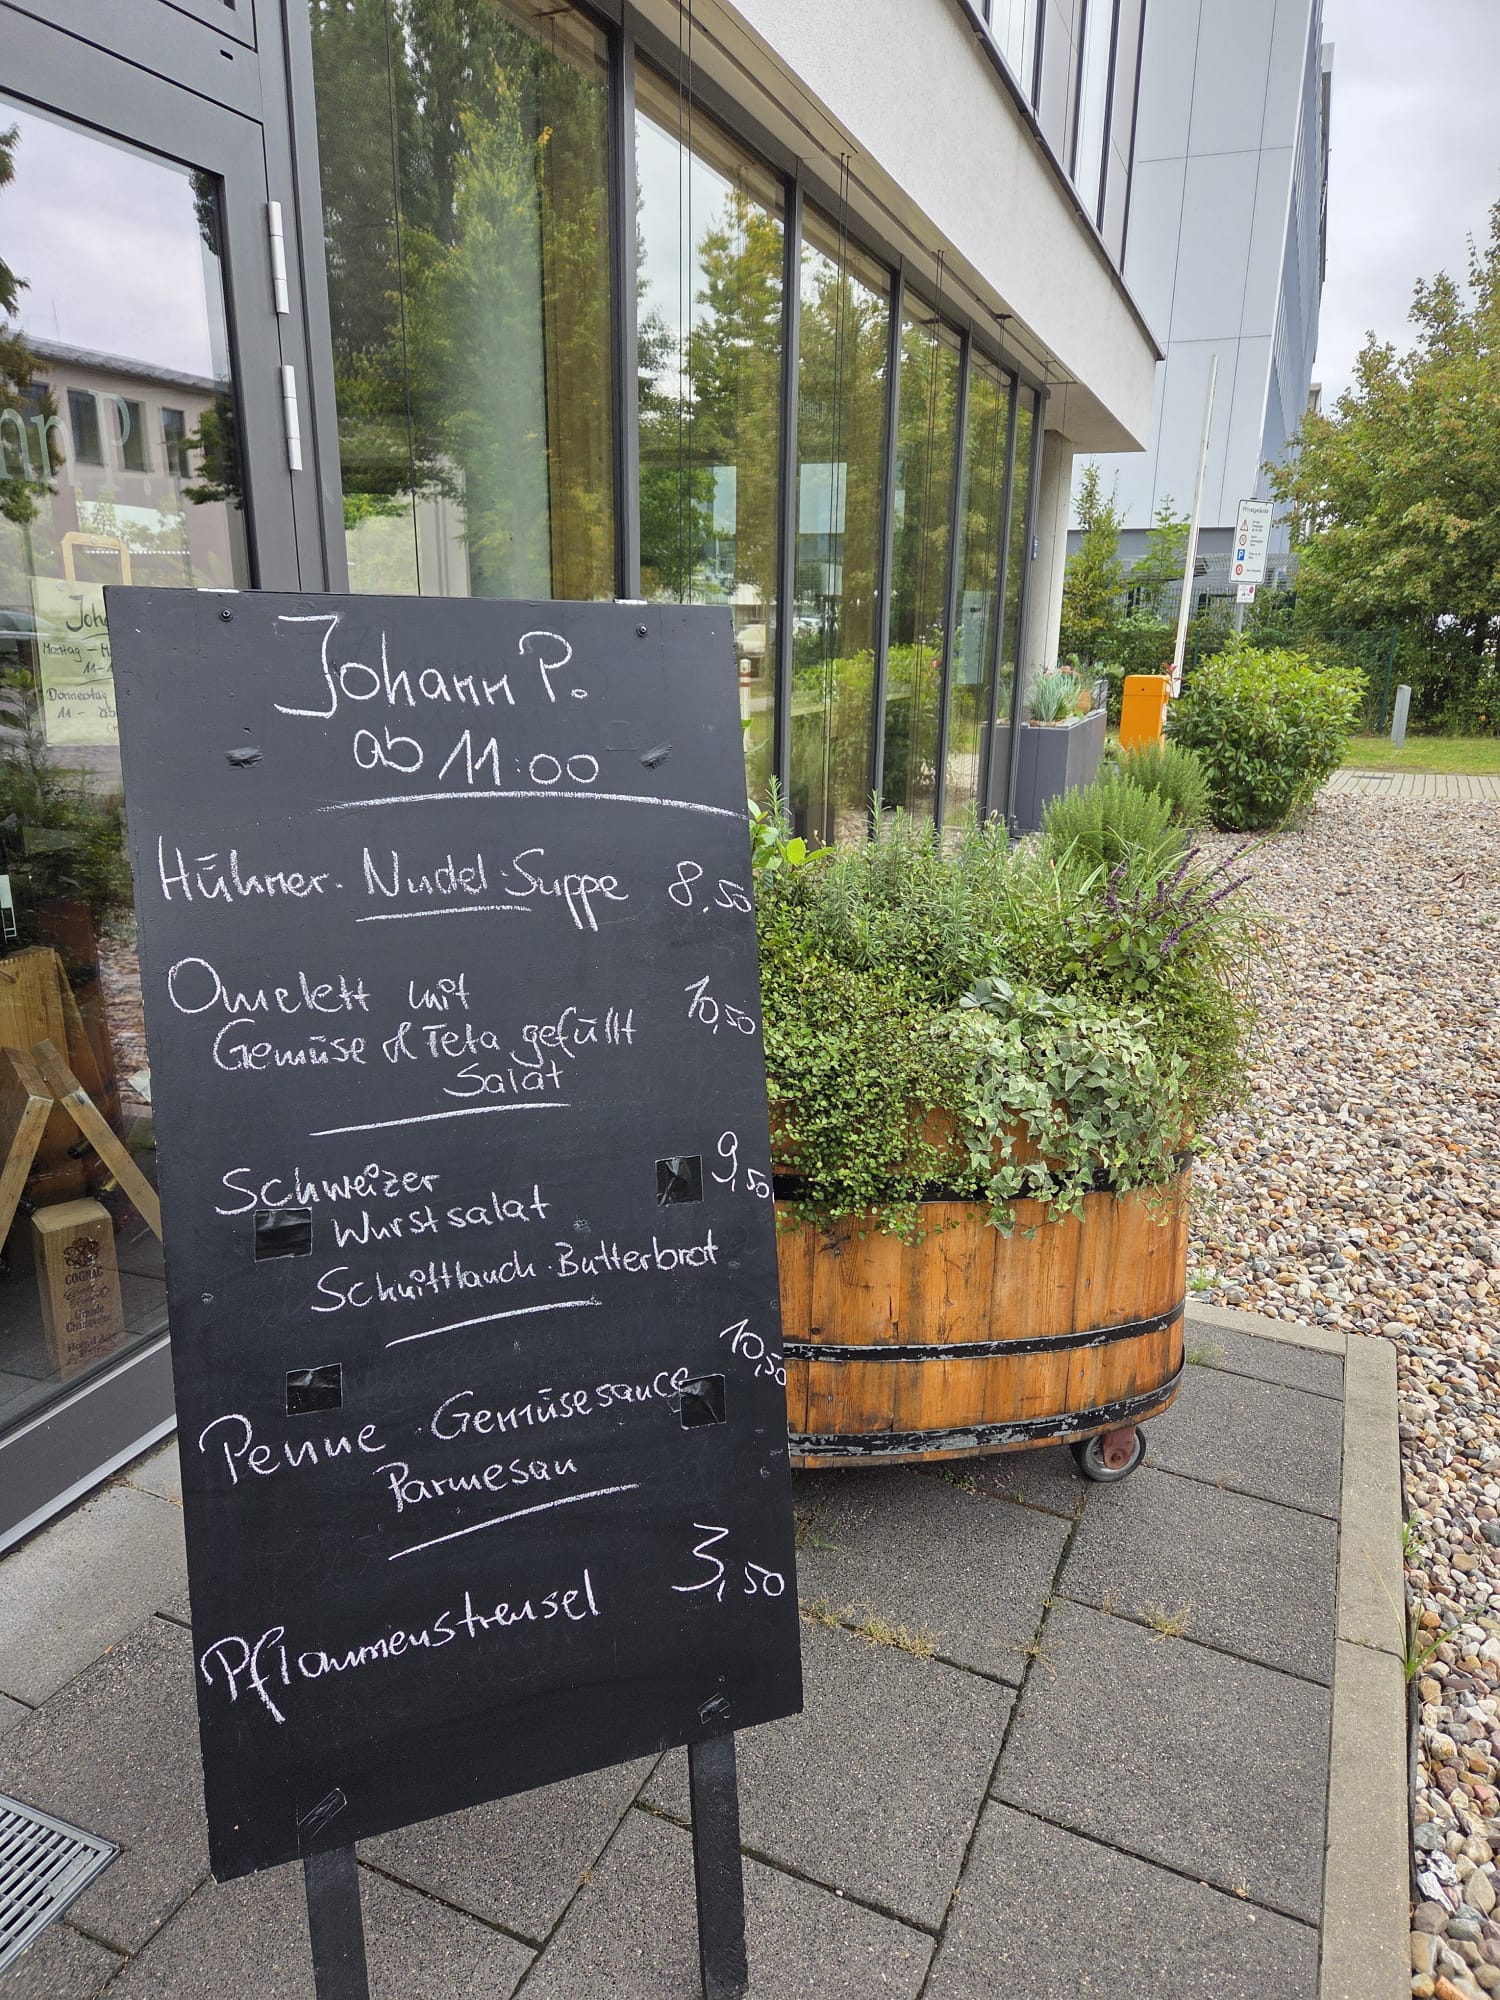 Johann P.
ab 11:00
Hühner-Nudel-Suppe 8,50
Omelett mit 10,50
Gemüse & Feta gefüllt
Salat
Schweizer 9,50
Wurstsalat
Schnittlauch-Butterbrot
10,50
Penne Gemüsesauce
Parmesan
3,50
Pflaumenstreusel
nn P.
Joha
Montag
11-1
Donnerstag
11 - ab
COGNAC
Grande
Champagne
Privatgelände